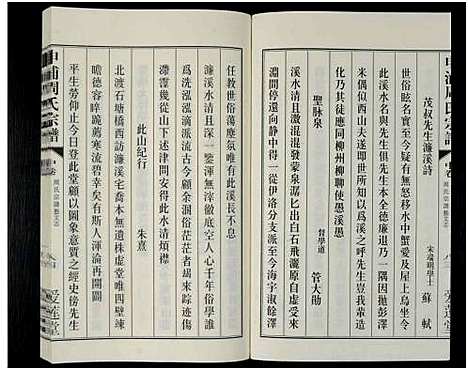 茂叔先生濂溪詩
宋端明學士 蘇軾
世俗眩名實至今疑有無怒移水中蟹愛及屋上烏坐令
此溪水名與先生俱先生本全德廉退乃一隅因抛彭澤
米偶似西山夫遂即世所知以爲溪之呼先生豈我輩造
化乃其徒應同柳州柳聊使愚溪愚
聖脉泉
督學道 管大勛
溪水清且漪混混發蒙泉潺潺白石飛灑原自虛
淵間停斯一以從伊洛分支千古同一海宇淑餘澤
任教世俗蕩塵氛唯有此溪長不息
濂溪水清且深一鑒渾無滓徹底空人心千年俗學誰
爲洗泓泓滴派流古今顧俗茫茫者曷來踪迹傷
滯霞幾從山下述津問安得挽此水清煩襟
此山紀行
朱熹
北渡石塘橋西訪濂溪宅喬木無遺株虛堂唯四壁竦
瞻德容睟跪薦寒流碧幸矣有斯人渾淪再開闢
平生勞仰止今日登此堂願以圖象意質之心史傍先生
申浦周氏宗譜
愛蓮堂